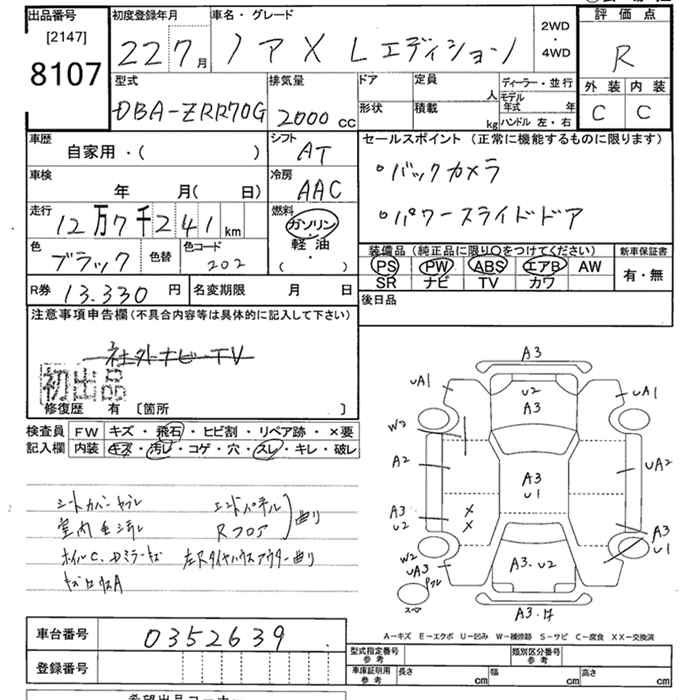 出品番号 [2147] 8107
初度登録年月 22 7月
車名・グレード ノア X Lエディション
2WD・4WD
評価点 R
外装 C 内装 C
型式 DBA-ZRR70G
排気量 2000 cc
ドア 形状
定員 人 積載 kg
ディーラー・並行 モデル年式 年 ハンドル 左・右
車歴 自家用・( )
シフト AT
セールスポイント (正常に機能するものに限ります)
・バックカメラ
・パワースライドドア
車検 年 月( 日)
冷房 AAC
走行 12万7千241km
燃料 ガソリン・軽油・( )
色 ブラック 色替 色コード 202
装備品 (純正品に限り○をつけてください) 新車保証書
PS PW ABS エアB AW 有・無
SR ナビ TV カワ
R券 13.330円 名変期限 月 日
後日品
注意事項申告欄(不具合内容等は具体的に記入して下さい)
社外ナビーTV
初出品
修復歴 有 [箇所 ]
検査員記入欄 FW キズ・飛石・ヒビ割・リペア跡・×要
内装 キズ・汚レ・コゲ・穴・スレ・キレ・破レ
シートカバーヤブレ エンドパネル
Rフロア 曲り
左Rタイヤハウスアウター曲り
A3
UA1 U2 A3 UA1
W2
A2 A3 U1 UA2
A3 U2 A3 U1
W2 UA3 A3.U2
スマ
A3.
A-キズ E-エクボ U-凹み W-補修跡 S-サビ C-腐食 XX-交換済
車台番号 0352639
登録番号
型式指定番号 参考 類別区分番号 参考
車庫証明用 参考 長さ cm 幅 cm 高さ cm